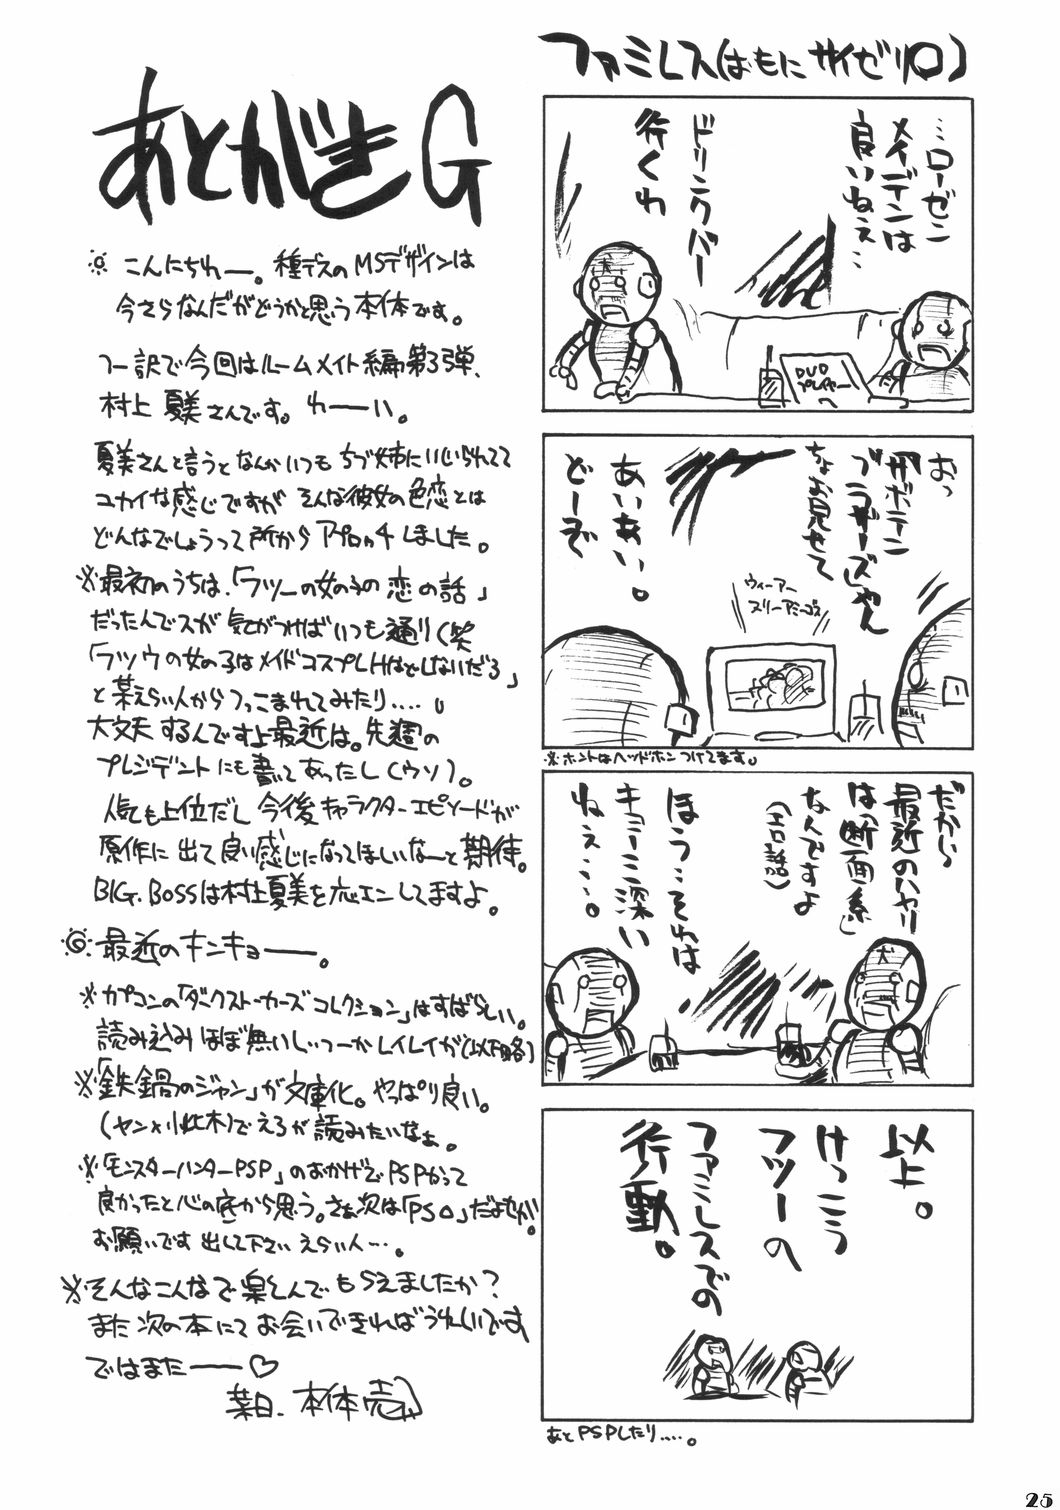 ファミレス(おもに サイゼリ○)
…ローゼン
メイデンは
良いねぇ…
ドリンクバー
行くわ
DVD
プレイヤー
へ
おっ
「サボテン
ブラザーズ」やん
ちょお見せて
あいあい。
どーぞ
ウィーアー
スリーアミーゴス
※ホントはヘッドホンつけてます。
だから
最近のハヤリ
は「断面系」
なんですよ
(エロ話)
ほう…それは
キョーミ深い
ねぇ……。
以上。
けっこう
フツーの
ファミレスでの
行動。
あと PSPしたり……。
あとがきG
こんにちわー。種デスのMSデザインは
今さらなんだがどうかと思う本体です。
つー訳で今回はルームメイト編第3弾、
村上 夏美さんです。わーい。
夏美さんと言うとなんかいつも ちづ姉にいじられてて
ユカイな感じですが そんな彼女の色恋とは
どんなでしょうって所からアプローチしました。
※最初のうちは、「フツーの女の子の恋の話」
だったんでスが 気がつけばいつも通り(笑
「フツウの女の子はメイドコスプレHはしないだろ」
と某えらい人からつっこまれてみたり……。
大丈夫 するんですよ最近は。先週の
プレジデントにも書いてあったし(ウソ)。
人気も上位だし 今後キャラクターエピソードが
原作に出て良い感じになってほしいなーと期待。
BIG.BOSSは村上夏美を応エンしてますよ。
最近のキンキョー。
※カプコンの「ダークストーカーズコレクション」はすばらしい。
読み込みほぼ無いし、つーかレイレイが(以下略)
※「鉄鍋のジャン」が文庫化。やっぱり良い。
(ヤン×小此木)でえろが読みたいなぁ。
※「モンスターハンターPSP」のおかげでPSPかって
良かったと心の底から思う。さぁ次は「PS○」だよセガ。
お願いです 出して下さい えらい人…。
※そんなこんなで楽しんでもらえましたか?
また次の本にてお会いできればうれしいです
ではまたー♡
某日、本体売
25